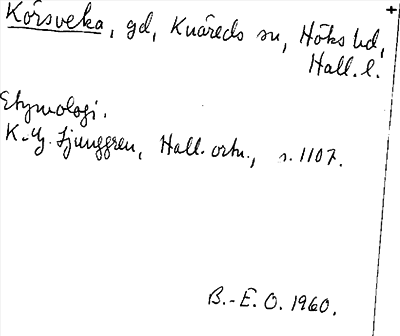 Korsveka, gd, Knäreds sn, Höks hd,
Hall. l.
Etymologi.
K.-G. Ljunggren, Hall. ortn., s. 1107.
B.-E. O. 1960.